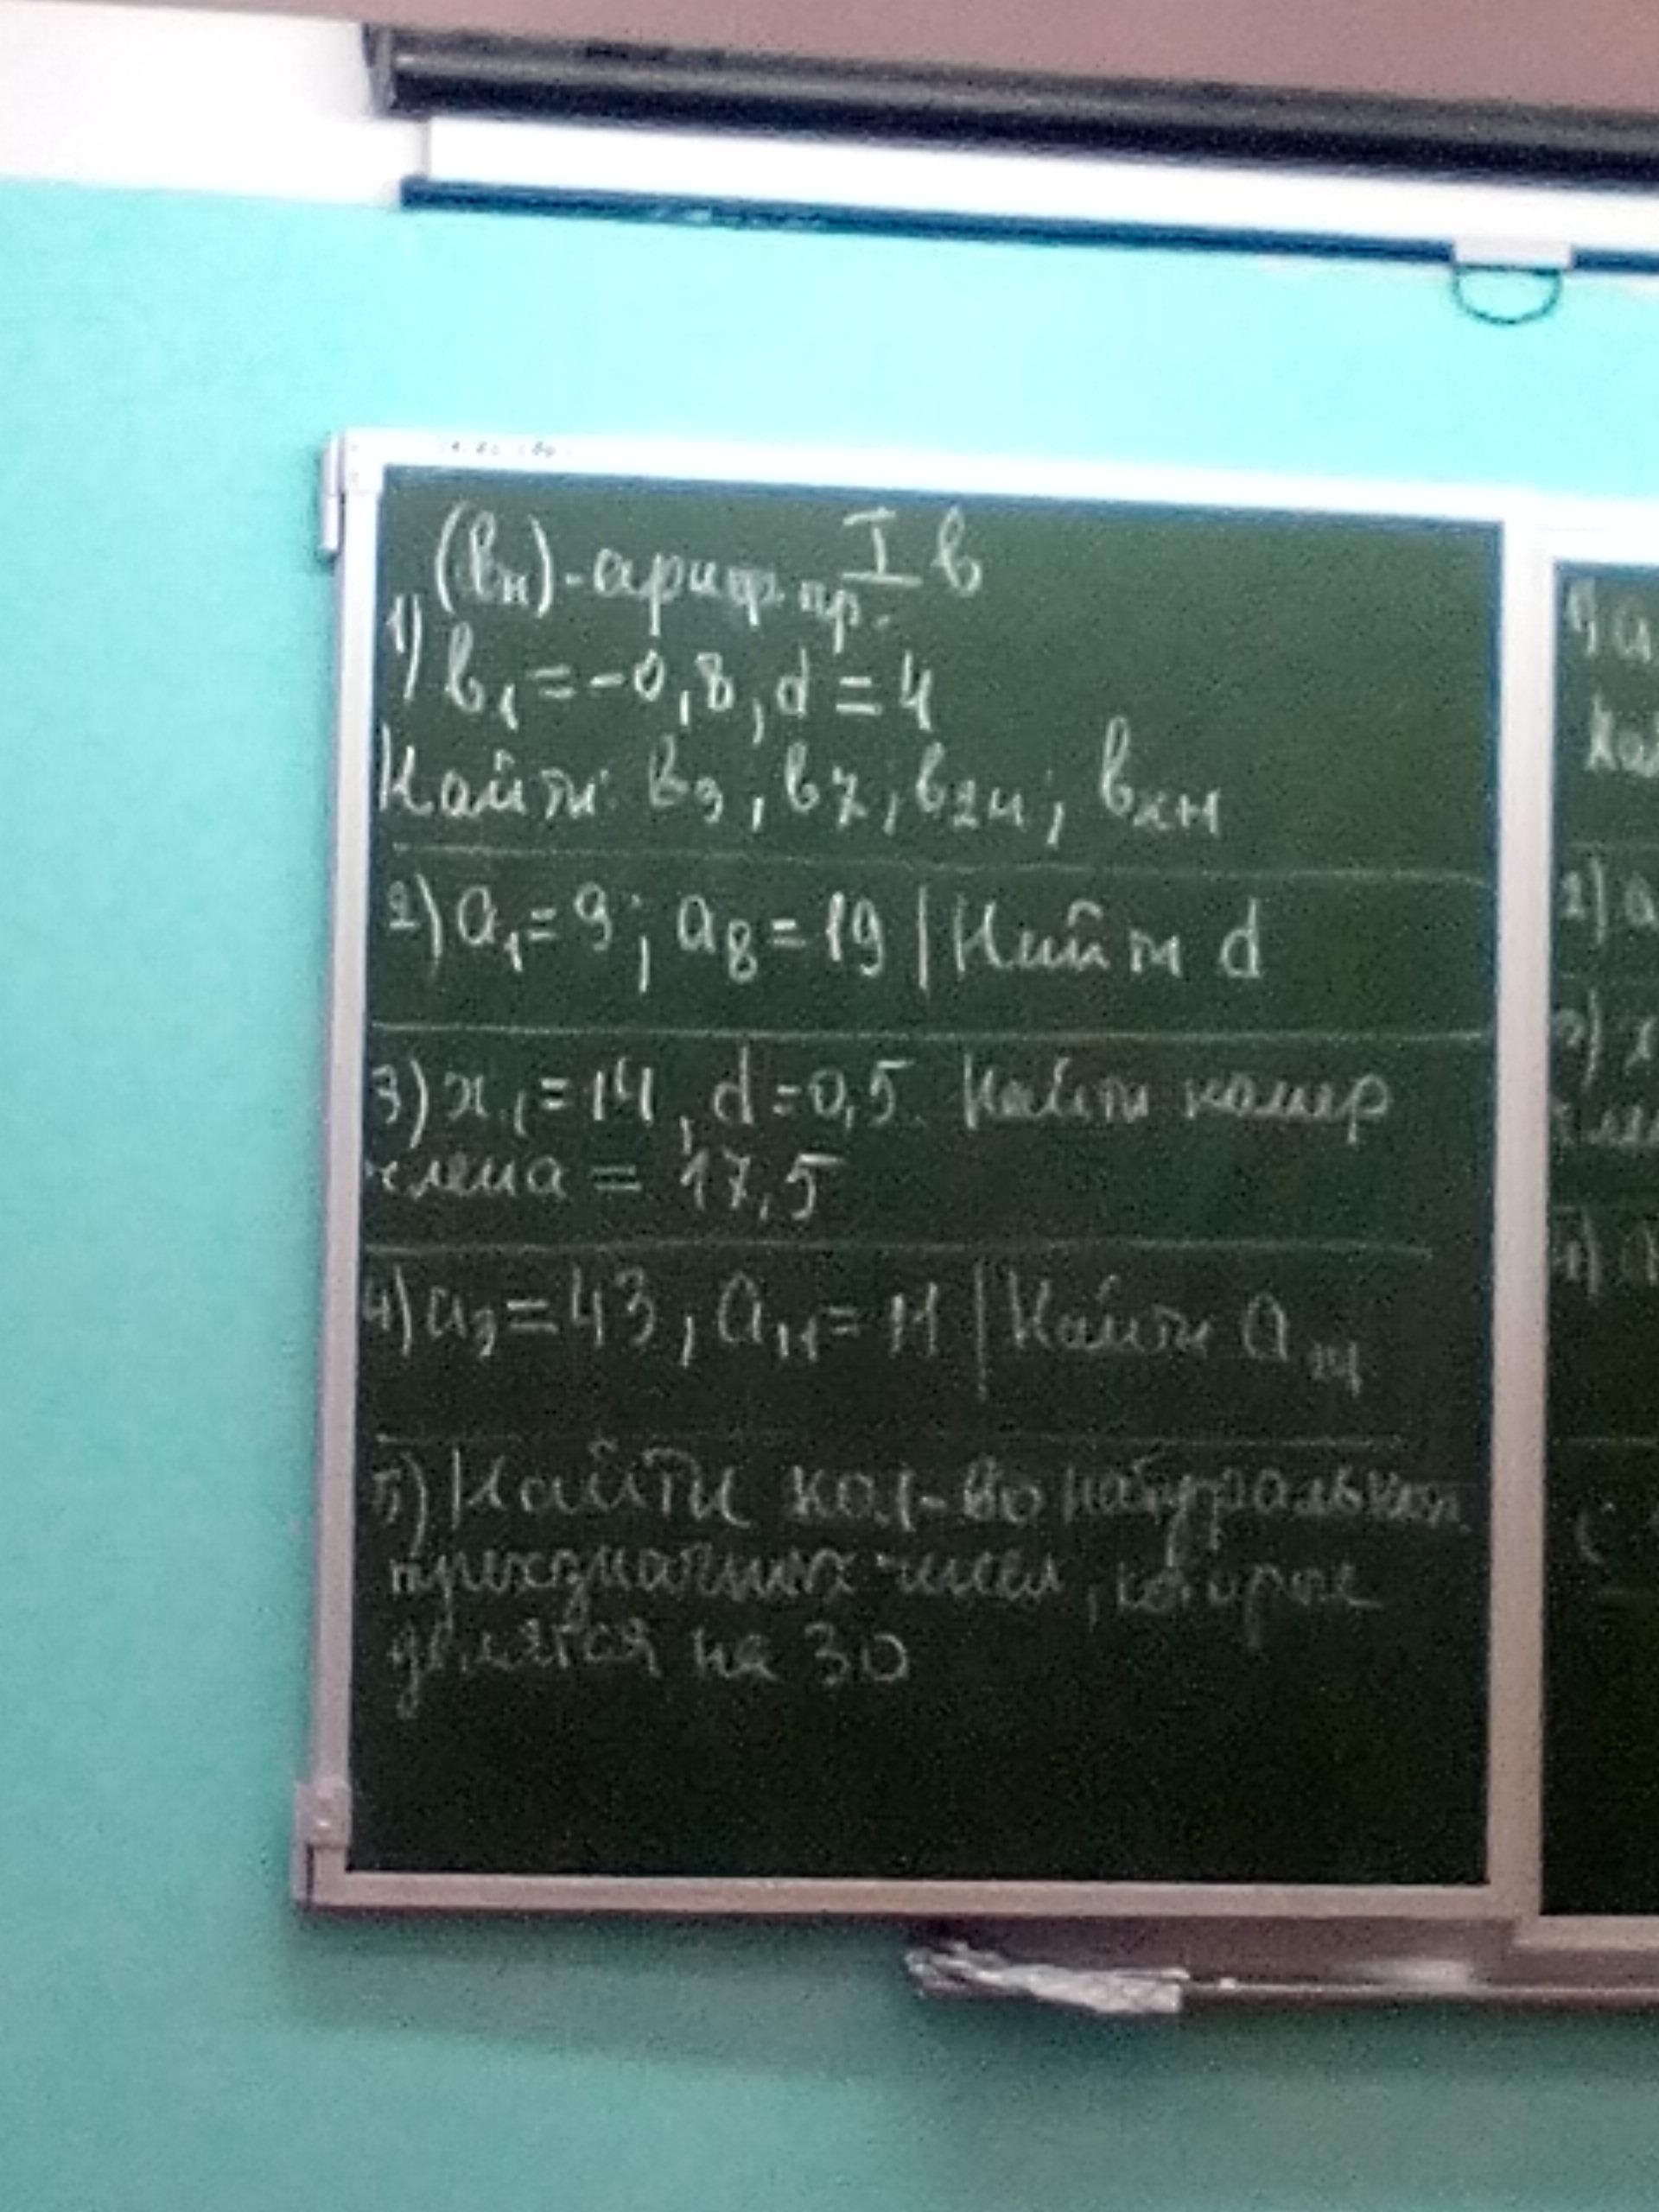 I в
(вн)-ариф. пр.
1) в₁ = -0,8, d = 4
Найти: в₃, в₇, в₂₄; вкн
2) a₁ = 9; a₈ = 19 | Найти d
3) x₁ = 14, d = 0,5. Найти номер
члена = 17,5
4) a₃ = 43, a₁₁ = 11 | Найти a
5) Найти кол-во натуральных
трехзначных чисел, которые
делятся на 30
1) a
Най
2) a
3) x
член
4) a